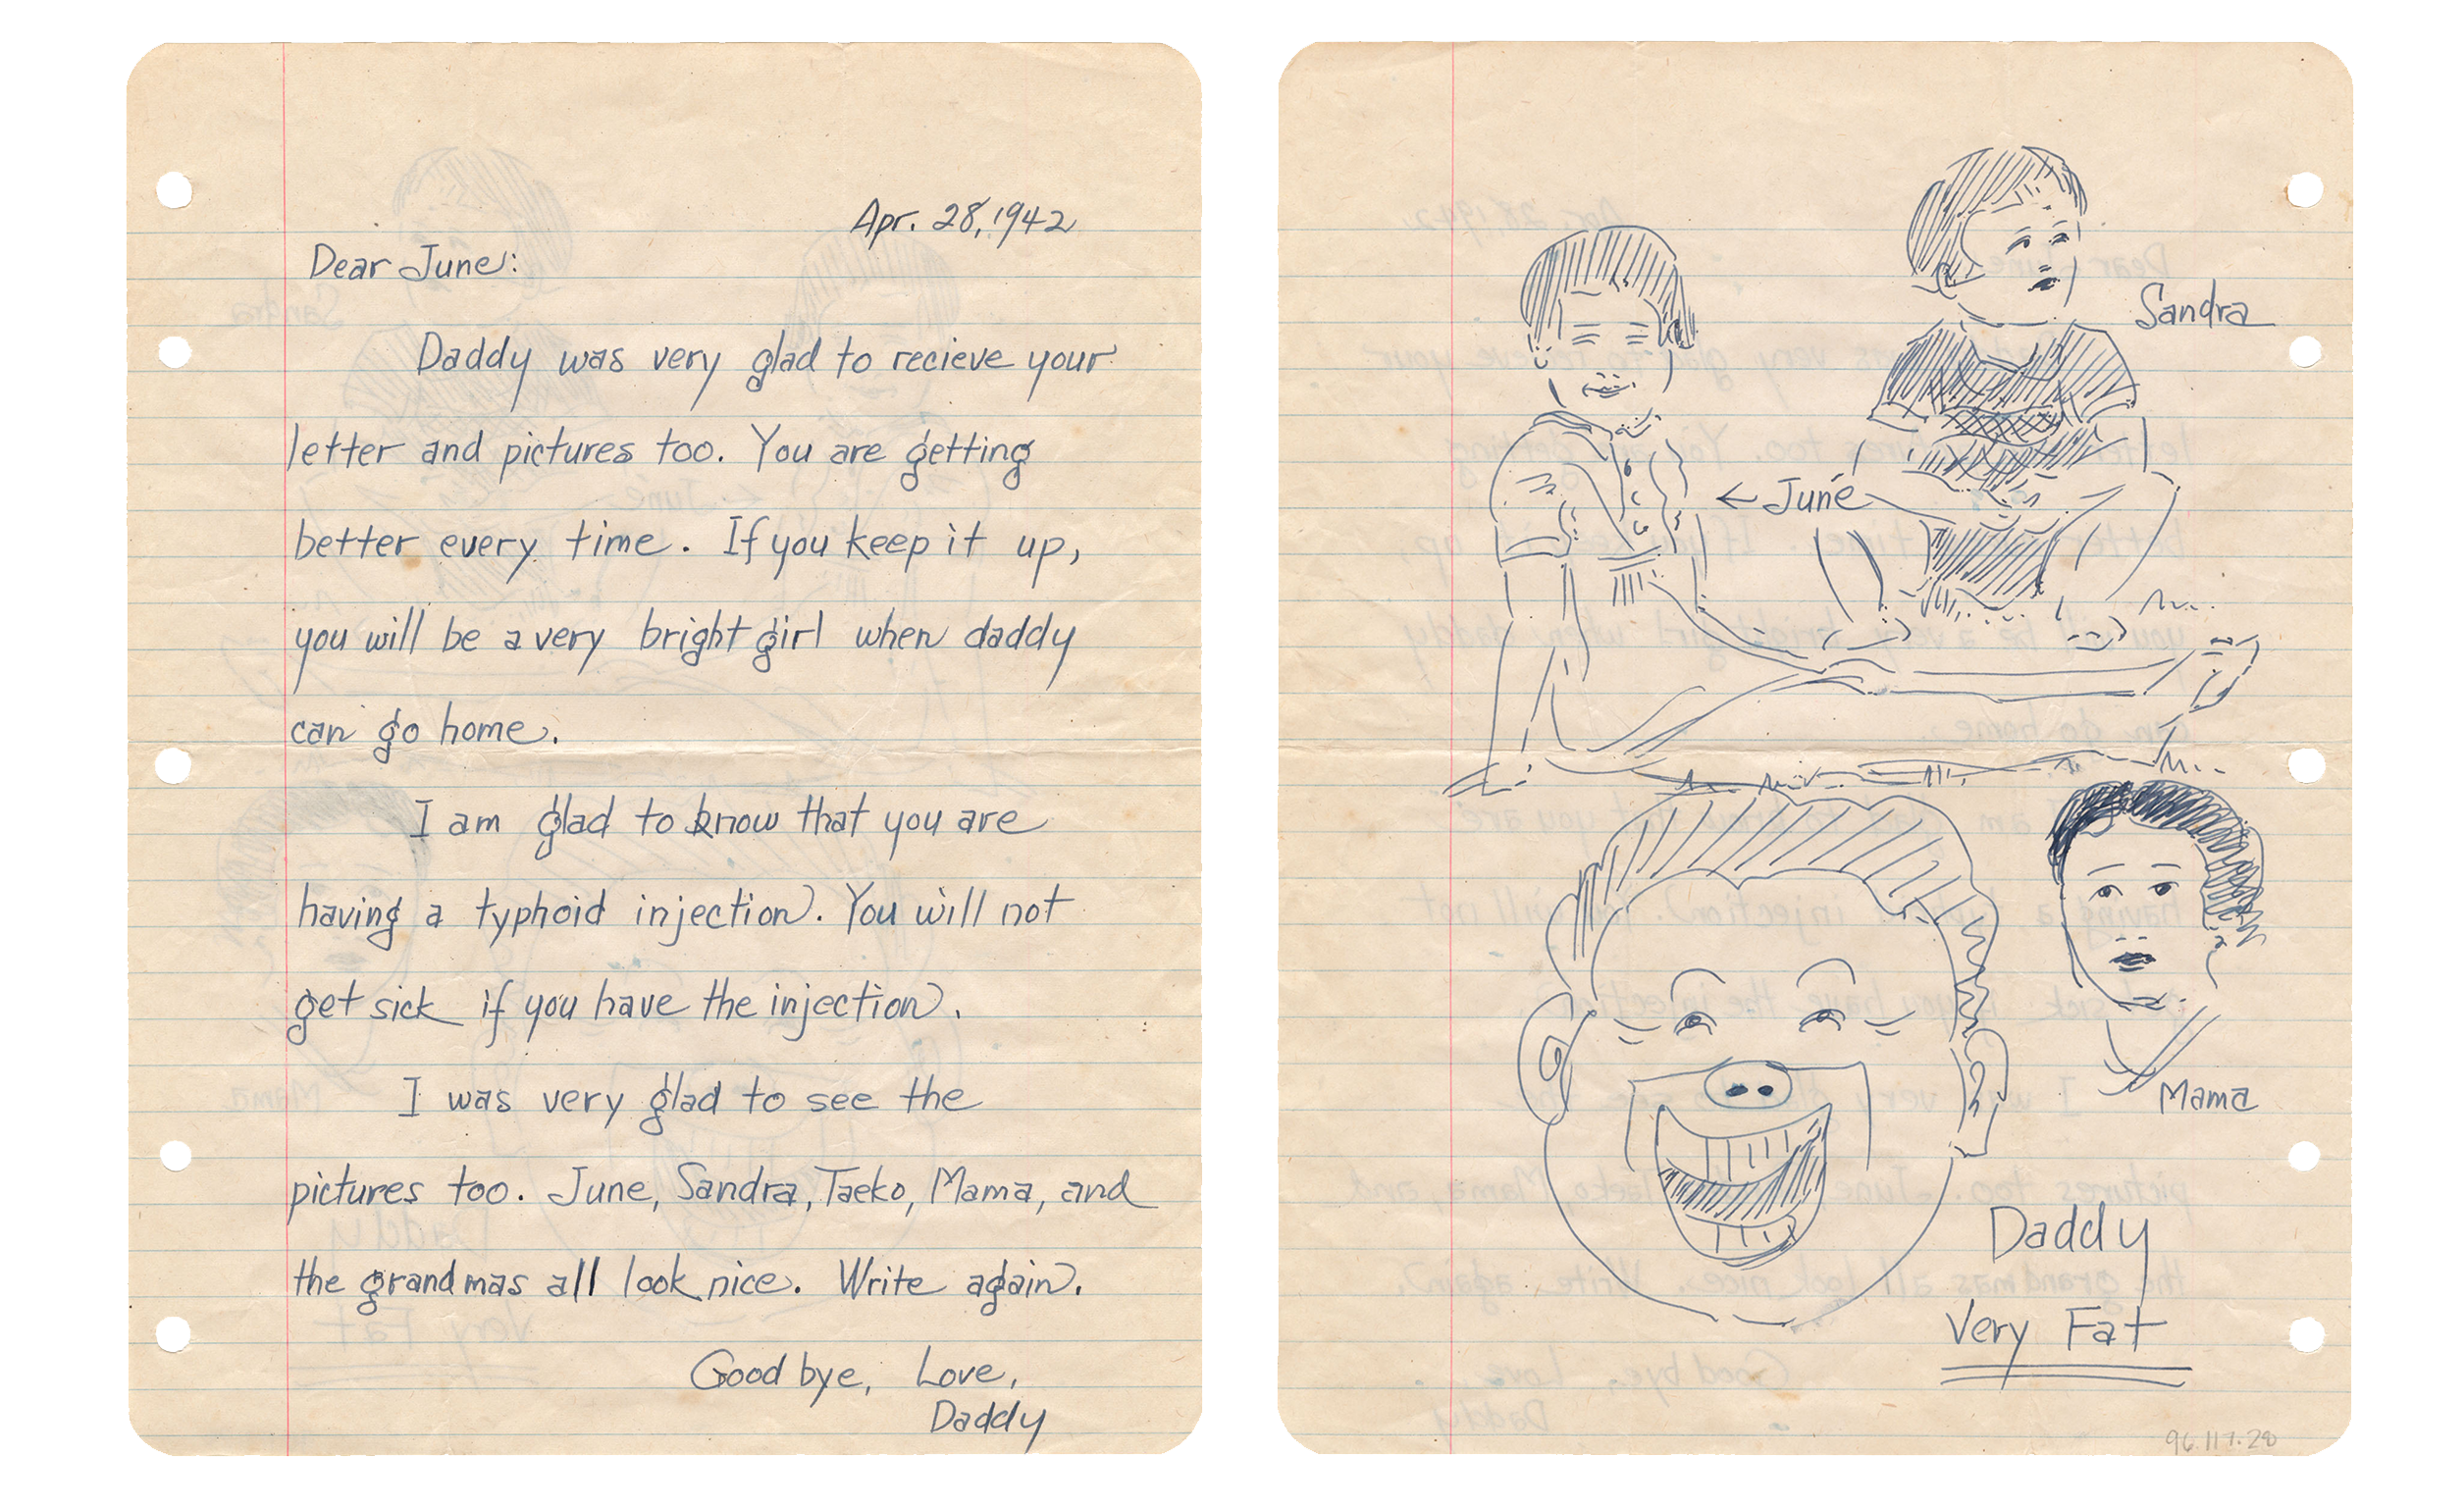 Apr. 28, 1942
Dear June:
Daddy was very glad to recieve your
letter and pictures too. You are getting
better every time. If you keep it up,
you will be a very bright girl when daddy
can go home.
I am glad to know that you are
having a typhoid injection. You will not
get sick if you have the injection.
I was very glad to see the
pictures too. June, Sandra, Taeko, Mama, and
the grandmas all look nice. Write again.
Good bye, Love,
Daddy
Sandra
← June
Mama
Daddy
Very Fat
96.117.28